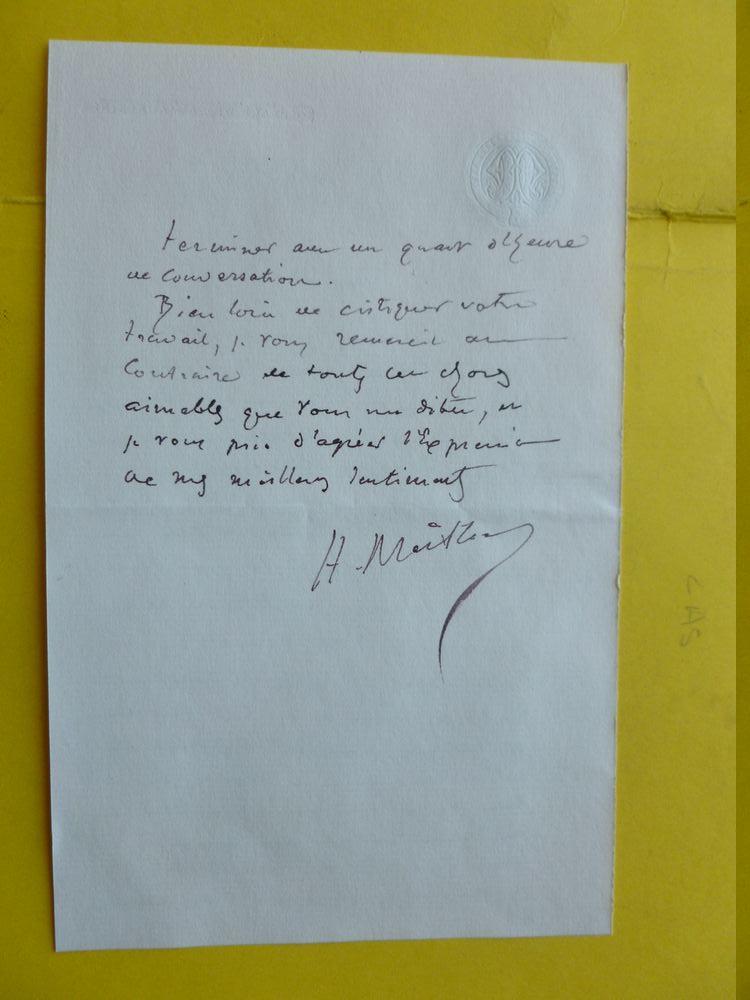 terminer avec un quart d'heure
de conversation.
Bien loin de critiquer votre
travail, je vous remercie au
Contraire de toutes ces choses
aimables que vous me dites, et
je vous prie d'agréer l'Expression
de mes meilleurs sentiments
H. Meilhac
LAS